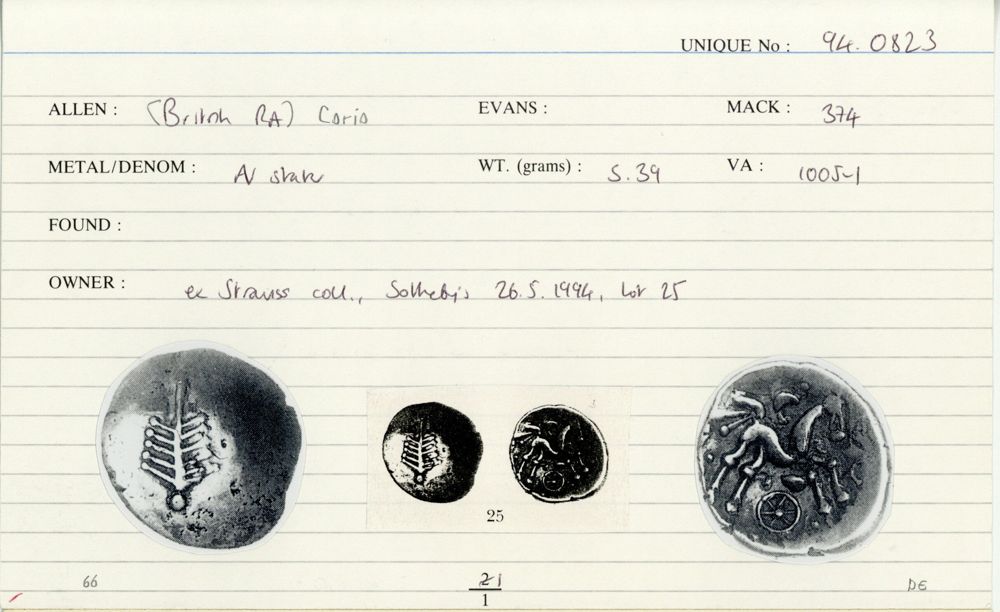 UNIQUE No : 94.0823
ALLEN : (British RA) Corio EVANS : MACK : 374
METAL/DENOM : AV stater WT. (grams) : 5.39 VA : 1005-1
FOUND :
OWNER : ex Strauss coll., Sotheby's 26.5.1994, Lot 25
25
66 21 DE
1